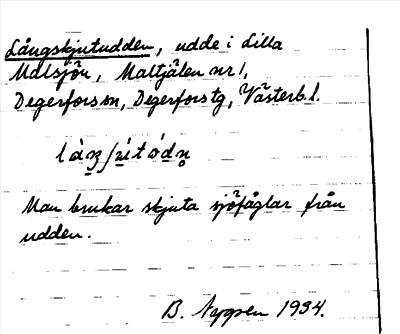 Långskjutudden, udde i Lilla
Malsjön, Maltjälen nr 1,
Degerfors sn, Degerfors tg, Västerb. l.
Man brukar skjuta sjöfåglar från
udden.
1934.